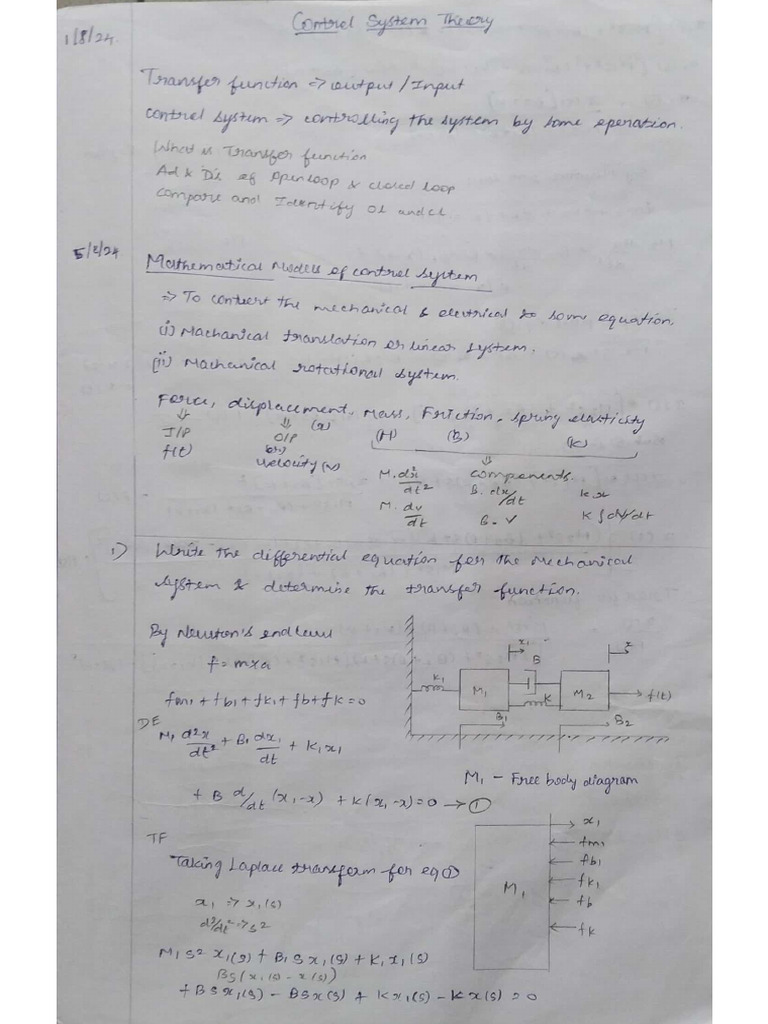 Control System Theory
1/8/24.
Transfer function => output / Input
control system => controlling the system by some operation.
What is Transfer function
Ad & Dis of open loop & closed loop
compare and Identify OL and CL
5/8/24
Mathematical Models of control system
=> To convert the mechanical & electrical to some equation.
(i) Machanical translation or linear system.
(ii) Machanical rotational system.
Force, displacement, Mass, Friction, spring elasticity
⇓ ⇓ (x) (M) (B) (K)
I/P O/P
f(t) (or) ⇓
velocity (v) components.
M. dx/dt² B. dx/dt K.x
M. dv/dt B.V K∫dv/dt
1) Write the differential equation for the Mechanical
system & determine the transfer function.
By Newton's 2nd law
f = m x a
fm1 + fb1 + fk1 + fb + fk = 0
DE
M1 d²x/dt² + B1 dx1/dt + K1x1
+ B d/dt (x1-x) + K(x1-x) = 0 → ①
x1 x
K1 M1 B K M2 f(t)
B1 B2
M1 - Free body diagram
x1
fm1
fb1
fk1
fb
fk
M1
TF
Taking Laplace transform for eq ①
x1 => x1(s)
d²/dt² => s²
M1s² x1(s) + B1s x1(s) + K1x1(s)
Bs(x1(s) - x(s))
+ Bs x1(s) - Bsx(s) + Kx1(s) - Kx(s) = 0